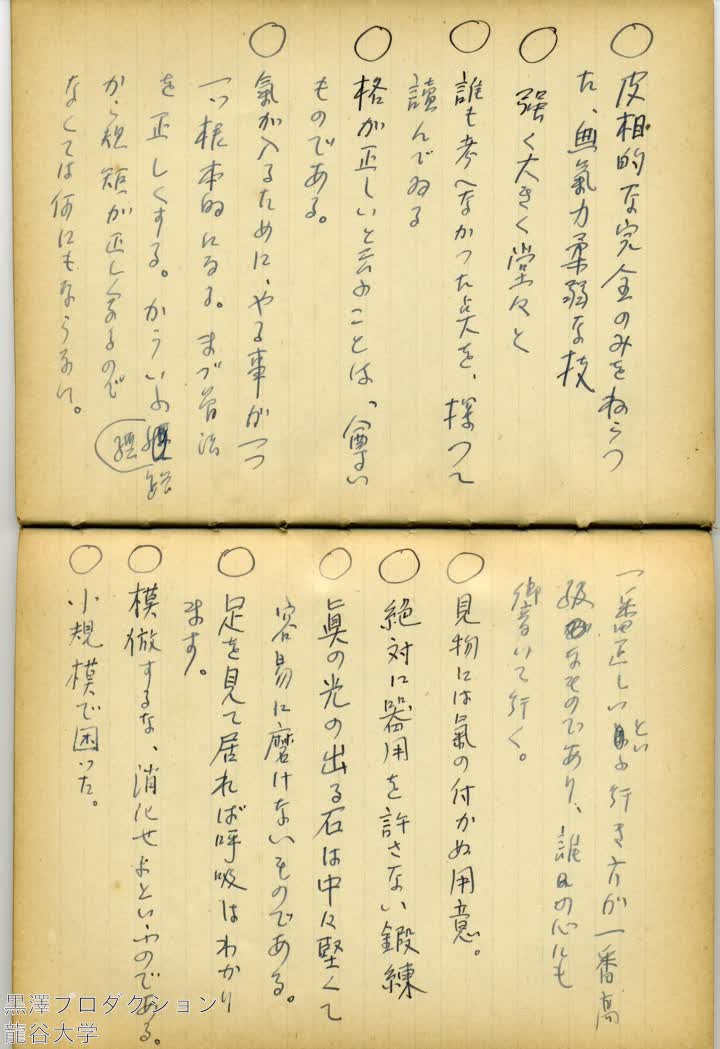 ○ 皮相的な完全のみをねらつ
た、無氣力柔弱な技
○ 強く大きく堂々と
○ 誰も考へなかつた点を、探つて
讀んでゐる
○ 格が正しいと云ふことは、尊い
ものである。
○ 氣が入るために、やる事が一つ
一つ根本的になる。まづ
を正しくする。かういふ
から規矩が正しくなるので
なくては何にもならない。
一番正しいとい
ふ行き方が一番高
級なものであり、誰の心にも
響いて行く。
○ 見物には氣の付かぬ用意。
○ 絶対に器用を許さない鍛練
○ 眞の光の出る石は中々堅くて
容易に磨けないものである。
○ 足を見て居れば呼吸はわかり
ます。
○ 模倣するな、消化せよといふのである。
○ 小規模で困つた。
黒澤プロダクション
龍谷大学